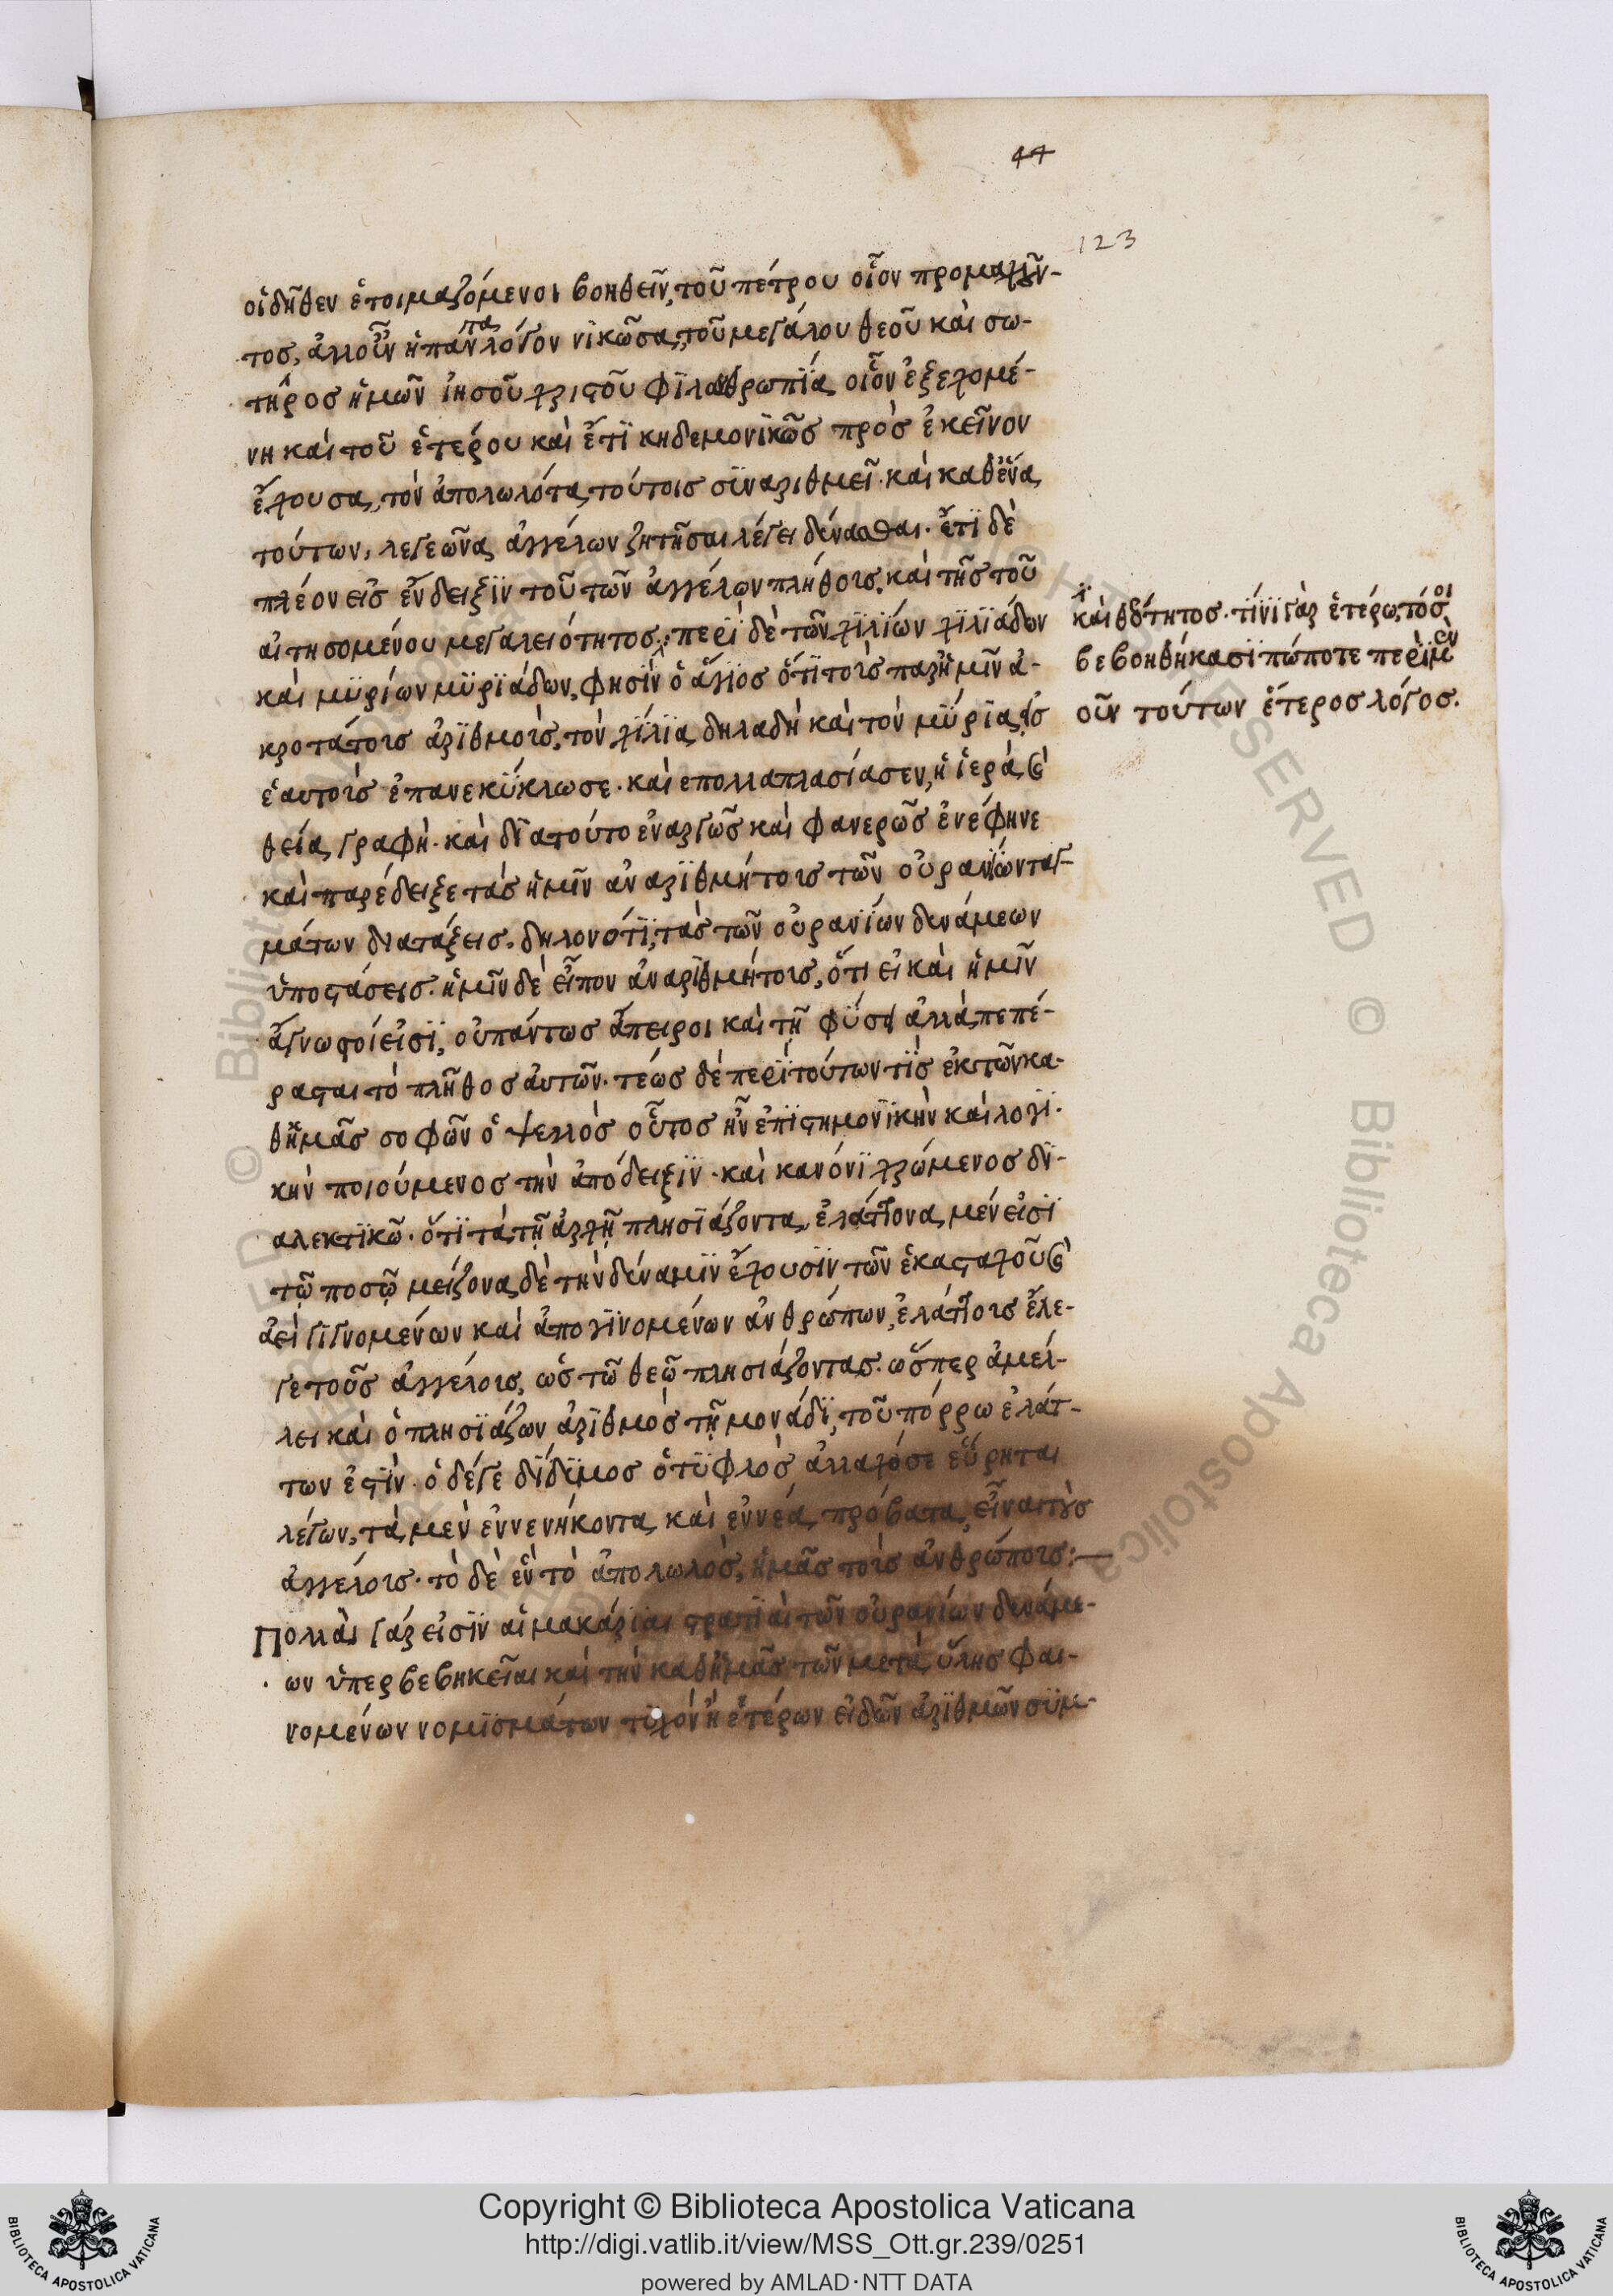 44
123
οἱ δῆθεν ἑτοιμαζόμενοι βοηθεῖν, τοῦ πέτρου οἷον προμαχοῦν-
τος, ἀλλ οὖν ἡ πάντα λόγον νικῶσα, τοῦ μεγάλου θεοῦ καὶ σω-
τῆρος ἡμῶν ἰησοῦ χριστοῦ φϊλανθρωπΐα, οἷον ἐξεχομέ-
νη καὶ τοῦ ἑτέρου καὶ ἔτϊ κηδεμονϊκῶς πρὸς ἐκεῖνον
ἔχουσα, τὸν ἀπολωλότα, τούτοις σϋναριθμεῖ. καὶ καθ' ἕνα
τούτων, λεγεῶνας ἀγγέλων ζητῆσαι λέγει δύνασθαι. ἔτϊ δὲ
πλέον εἰς ἔνδειξϊν τοῦ τῶν ἀγγέλων πλήθους, καὶ τῆς τοῦ
αἰτησομένου μεγαλειότητος: περὶ δὲ τῶν χϊλϊων χϊλϊάδων
καὶ μϋρίων μϋρϊάδων, φησὶν ὁ ἅγϊος ὅτϊ τοὺς παρ' ἡμῖν ἀ-
κροτάτους ἀρϊθμοὺς, τὸν χίλϊα, δηλαδὴ καὶ τὸν μϋρϊα, εἰς
ἑαυτοὺς ἐπανεκύκλωσε. καὶ επολλαπλασίασεν, ἡ ἱερά, καὶ
θεία, γραφή. καὶ δϊατοῦτο ἐναργῶς καὶ φανερῶς ἐνέφηνε
καὶ παρέδειξε τὰς ἡμῖν ἀναρϊθμήτους τῶν οὐρανΐων ταγ-
μάτων διατάξεις. δηλονότϊ, τὰς τῶν οὐρανΐων δυνάμεων
ὑποστάσεις. ἡμῖν δὲ εἶπον ἀναρϊθμήτους, ὅτι εἰ καὶ ἡμῖν
ἄγνωστοί εἰσϊ, οὐ πάντως ἄπειροι καὶ τῇ φύσει ἀλλὰ, πεπέ-
ρασται τὸ πλῆθος αὐτῶν. τέως δὲ περὶ τούτων τὶς ἐκ τῶν κα-
θ' ἡμᾶς σοφῶν ὁ ψελλὸς οὗτος ἦν ἐπϊστημονϊκὴν καὶ λογι-
κὴν ποιούμενος τὴν ἀπόδειξϊν. καὶ κανόνϊ χρώμενος δϊ-
αλεκτϊκῷ. ὅτϊ τὰ, τῇ ἀρχῇ πλησϊάζοντα, ἐλάττονα, μέν εἰσϊ
τῷ ποσῷ μείζονα, δὲ τὴν δύναμϊν ἔχουσϊν τῶν ἑκασταχοῦ καὶ
ἀεὶ γϊγνομένων καὶ ἀπογϊνομένων ἀνθρώπων, ἐλάττους ἔλε-
γε τοὺς ἀγγέλους, ὡς τῷ θεῷ πλησιάζοντας. ὥσπερ ἀμέλ-
λει καὶ ὁ πλησϊάζων ἀρϊθμὸς τῇ μονάδϊ, τοῦ πόρρω ἐλάτ-
των ἐστΐν. ὁ δέγε δΐδϋμος ὁ τϋφλὸς ἀλλαχόσε εὕρηται
λέγων, τὰ, μὲν ἐννενήκοντα, καὶ ἐννέα, πρόβατα, εἶναι τοὺς
ἀγγέλους. τὸ δὲ ἓν τὸ ἀπολωλὸς, ἡμᾶς τοὺς ἀνθρώπους:—
Πολλαὶ γάρ εἰσϊν αἱ μακάρϊαι στρατϊαὶ τῶν οὐρανίων δυνάμε-
ων ὑπερβεβηκεῖαι καὶ τὴν καθ' ἡμᾶς τῶν μετὰ, ὕλης φαι-
νομένων νομϊσμάτων τϋχὸν ἢ ἑτέρων εἰδῶν ἀρϊθμῶν σϋμ-
καὶ θεότητος. τίνϊ γὰρ ἑτέρω, τόσοι
βεβοηθήκασϊ πώποτε περὶ μὲν
οὖν τούτων ἕτερος λόγος.
Copyright © Biblioteca Apostolica Vaticana
http://digi.vatlib.it/view/MSS_Ott.gr.239/0251
powered by AMLAD·NTT DATA